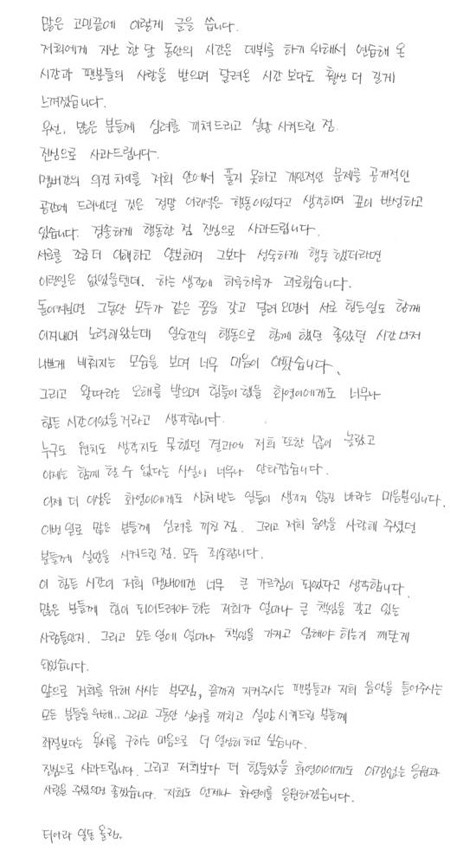 많은 고민끝에 이렇게 글을 씁니다.
저희에게 지난 한 달 동안의 시간은 데뷔를 하기 위해서 연습해 온
시간과 팬분들의 사랑을 받으며 달려온 시간보다도 훨씬 더 길게
느껴졌습니다.
우선, 많은 분들께 심려를 끼쳐드리고 실망 시켜드린 점.
진심으로 사과드립니다.
멤버간의 의견 차이를 저희 안에서 풀지 못하고 개인적인 문제를 공개적인
공간에 드러냈던 것은 정말 어리석은 행동이었다고 생각하며 깊이 반성하고
있습니다. 경솔하게 행동한 점 진심으로 사과드립니다.
서로를 조금 더 이해하고 양보하며 그보다 성숙하게 행동했더라면
이런일은 없었을텐데. 하는 생각에 하루하루가 괴로웠습니다.
돌이켜보면 그동안 모두가 같은 꿈을 갖고 달려오면서 서로 힘든일도 함께
이겨내며 노력해왔는데 일순간의 행동으로 함께 했던 좋았던 시간마저
나쁘게 비춰지는 모습을 보며 너무 마음이 아팠습니다.
그리고 왕따라는 오해를 받으며 힘들어했을 화영이에게도 너무나
힘든 시간이었을거라고 생각합니다.
누구도 원치도 생각지도 못했던 결과에 저희 또한 많이 놀랐고
이제는 함께 할 수 없다는 사실이 너무나 안타깝습니다.
이제 더 이상은 화영이에게도 상처받는 일들이 생기지 않길 바라는 마음뿐입니다.
이번 일로 많은 분들께 심려를 끼친 점. 그리고 저희 음악을 사랑해 주셨던
분들께 실망을 시켜드린 점. 모두 죄송합니다.
이 힘든 시간이 저희 멤버에겐 너무 큰 가르침이 되었다고 생각합니다.
많은 분들께 힘이 되어드려야 하는 저희가 얼마나 큰 책임을 갖고 있는
사람들인지. 그리고 모든 일에 얼마나 책임을 가지고 임해야 하는지 깨닫게
되었습니다.
앞으로 저희를 위해 사시는 부모님, 끝까지 지켜주시는 팬분들과 저희 음악을 들어주시는
모든 분들을 위해.. 그리고 그동안 심려를 끼치고 실망 시켜드린 분들께
좌절보다는 용서를 구하는 마음으로 더 열심히 하고 싶습니다.
진심으로 사과드립니다. 그리고 저희보다 더 힘들었을 화영이에게도 아낌없는 응원과
사랑을 주셨으면 좋겠습니다. 저희도 언제나 화영이를 응원하겠습니다.
티아라 일동 올림.